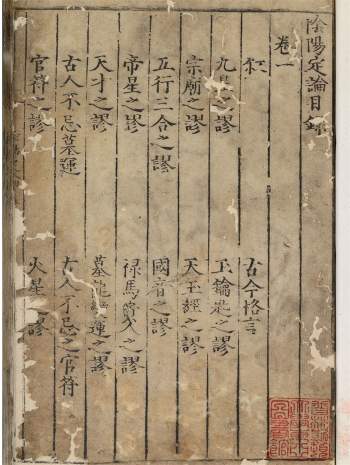 陰陽定論目錄
卷一
古今格言
九星之謬
玉鑰匙之謬
宗廟之謬
天玉經之謬
五行三合之謬
國音之謬
帝星之謬
禄馬貴人之謬
天才之謬
墓龍變運之謬
古人不忌墓運
古人不忌之官符
官符之謬
火星之謬